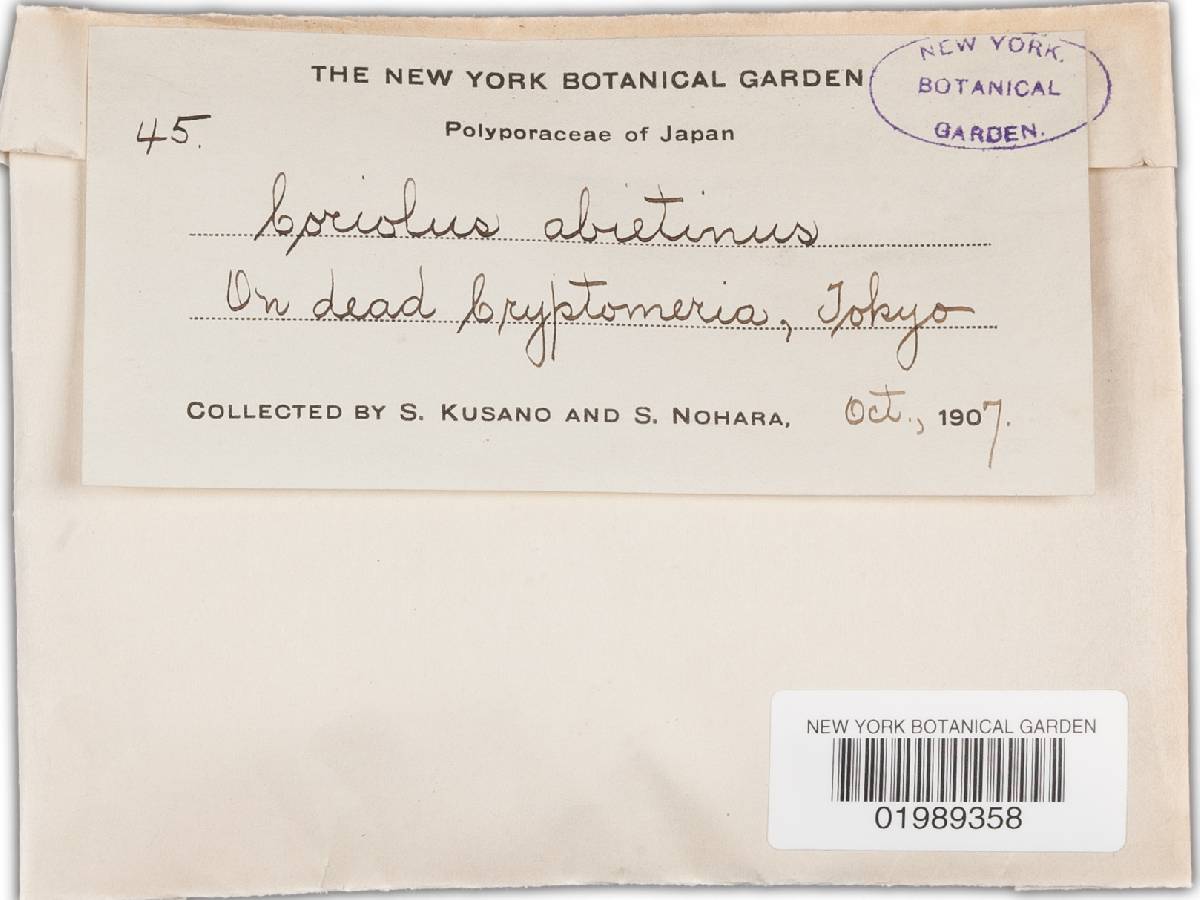 THE NEW YORK BOTANICAL GARDEN
NEW YORK.
BOTANICAL
GARDEN.
45.
Polyporaceae of Japan
Coriolus abietinus
On dead Cryptomeria, Tokyo
COLLECTED BY S. KUSANO AND S. NOHARA, Oct., 1907.
NEW YORK BOTANICAL GARDEN
01989358